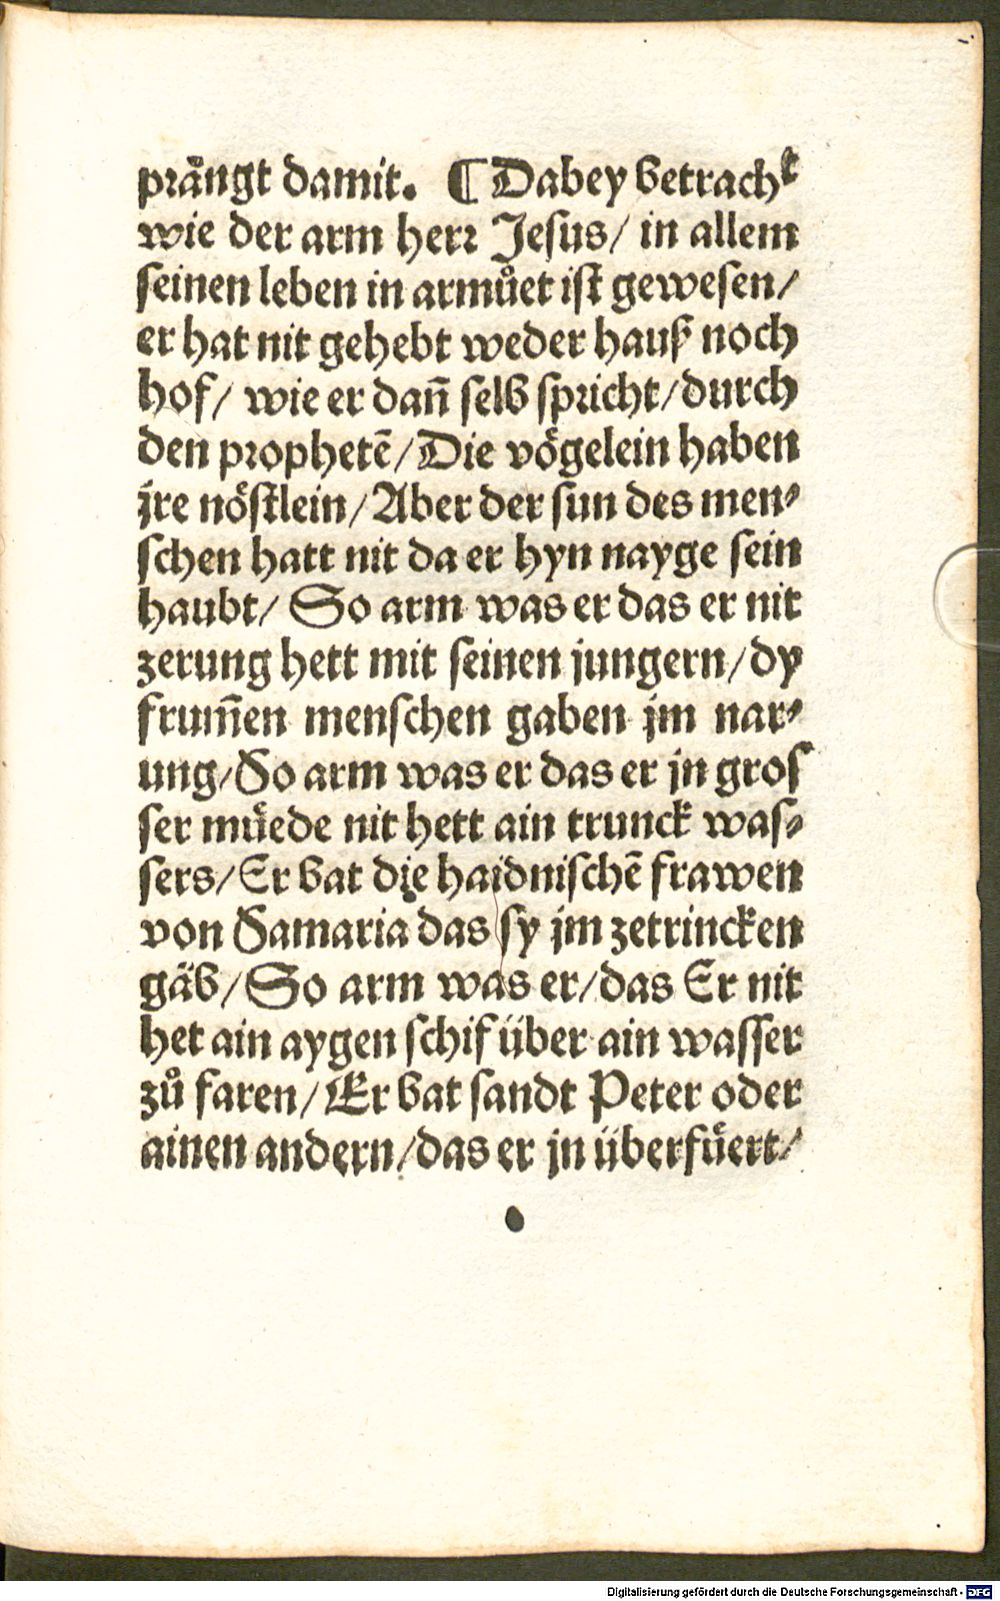 prångt damit. ¶ Dabey betracht
wie der arm herr Jesus/ in allem
seinen leben in armůet ist gewesen/
er hat nit gehebt weder hauß noch
hof/ wie er dan̄ selb spricht/durch
den prophetē/Die vögelein haben
jre nöstlein/Aber der sun des men⸗
schen hatt nit da er hyn nayge sein
haubt/ So arm was er das er nit
zerung hett mit seinen jungern/dy
frum̄en menschen gaben jm nar⸗
ung/So arm was er das er jn gros
ser müede nit hett ain trunck was⸗
sers/Er bat die haidnischē frawen
von Samaria das sy jm zetrincken
gäb/So arm was er/das Er nit
het ain aygen schif über ain wasser
zů faren/Er bat sandt Peter oder
ainen andern/das er jn überfüert/
Digitalisierung gefördert durch die Deutsche Forschungsgemeinschaft - DFG